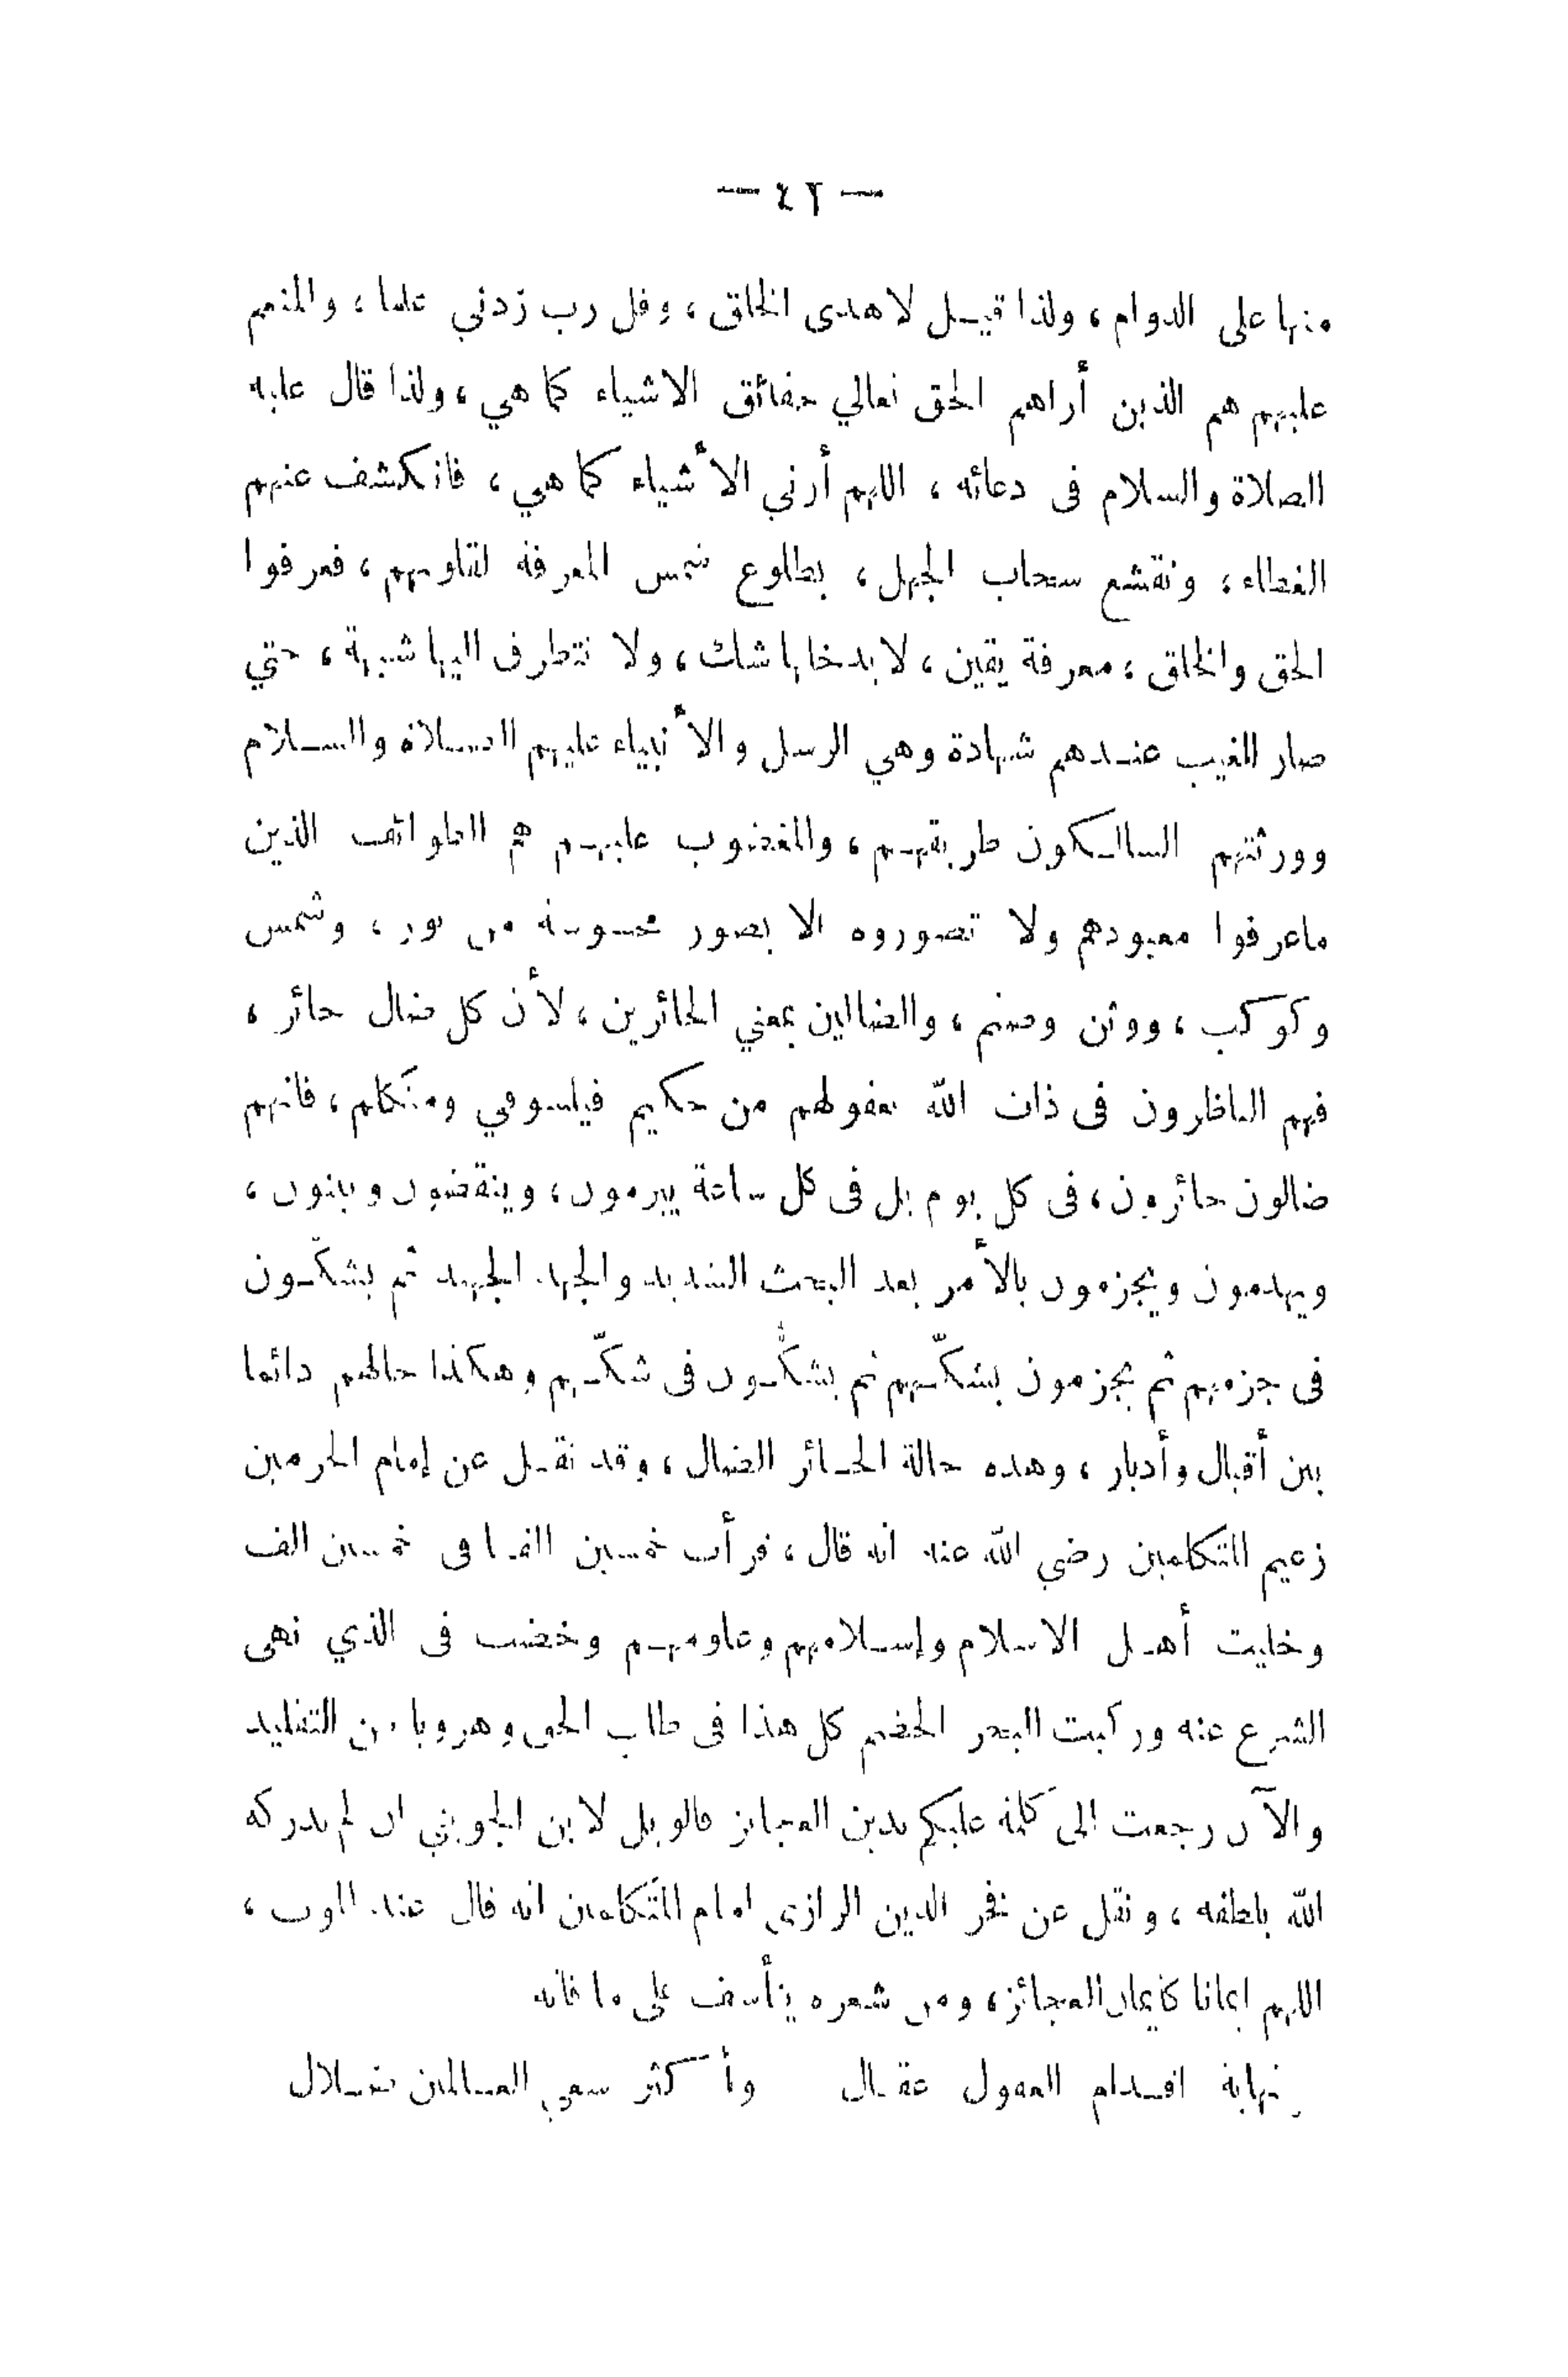 — ٤٢ —
منها على الدوام، ولذا قيل لاهدى الخلق، وقل رب زدني علما، والمنعم
عليهم هم الذين أراهم الحق تعالي حقائق الاشياء كما هي، ولذا قال عليه
الصلاة والسلام فى دعائه، اللهم أرني الأشياء كما هي، فانكشف عنهم
الغطاء، وتقشع سحاب الجهل، بطلوع شمس المعرفة لقلوبهم، فعرفوا
الحق والخلق، معرفة يقين، لا يدخلها شك، ولا تتطرف اليها شبهة، حتي
صار الغيب عندهم شهادة وهي الرسل والأنبياء عليهم الصلاة والسلام
وورثتهم السالكون طريقهم، والمغضوب عليهم هم الطوائف الذين
ماعرفوا معبودهم ولا تصوروه الا بصور محسوسة من نور، وشمس
وكوكب، ووثن وصنم، والضالين بمعني الحائرين، لأن كل ضال حائر،
فهم الناظرون فى ذات الله بعقولهم من حكيم فيلسوفي ومتكلم، فانهم
ضالون حائرون، فى كل يوم بل فى كل ساعة يبرمون، وينقضون ويبنون،
ويهدمون ويجزمون بالأمر بعد البحث الشديد والجهد الجهيد ثم يشكّون
فى جزمهم ثم يجزمون بشكّهم ثم يشكّون فى شكّهم وهكذا حالهم دائما
بين أقبال وأدبار، وهذه حالة الحائر الضال، وقد نقل عن إمام الحرمين
زعيم المتكلمين رضي الله عنه انه قال، قرأت خمسين الفا فى خمسين الف
وخليت أهل الاسلام وإسلامهم وعلومهم وخضت فى الذي نهى
الشرع عنه وركبت البحر الخضم كل هذا فى طلب الحق وهروبا من التقليد
والآن رجعت الى كلمة عليكم بدين العجائز فالويل لابن الجويني ان لم يدركه
الله بلطفه، ونقل عن فخر الدين الرازى امام المتكلمين انه قال عند الموت،
اللهم ايمانا كايمان العجائز، ومن شعره يتأسف على ما فاته
نهاية اقدام العقول عقال   وأكثر سعي العالمين ضلال